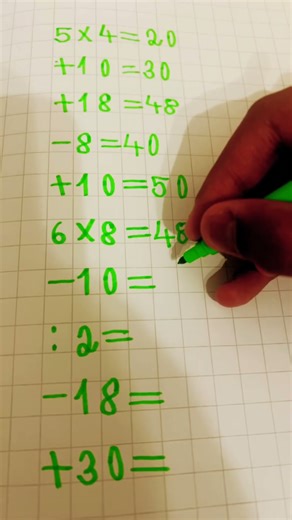 5×4=20
+10=30
+18=48
-8=40
+10=50
6×8=48
-10=
:2=
-18=
+30=